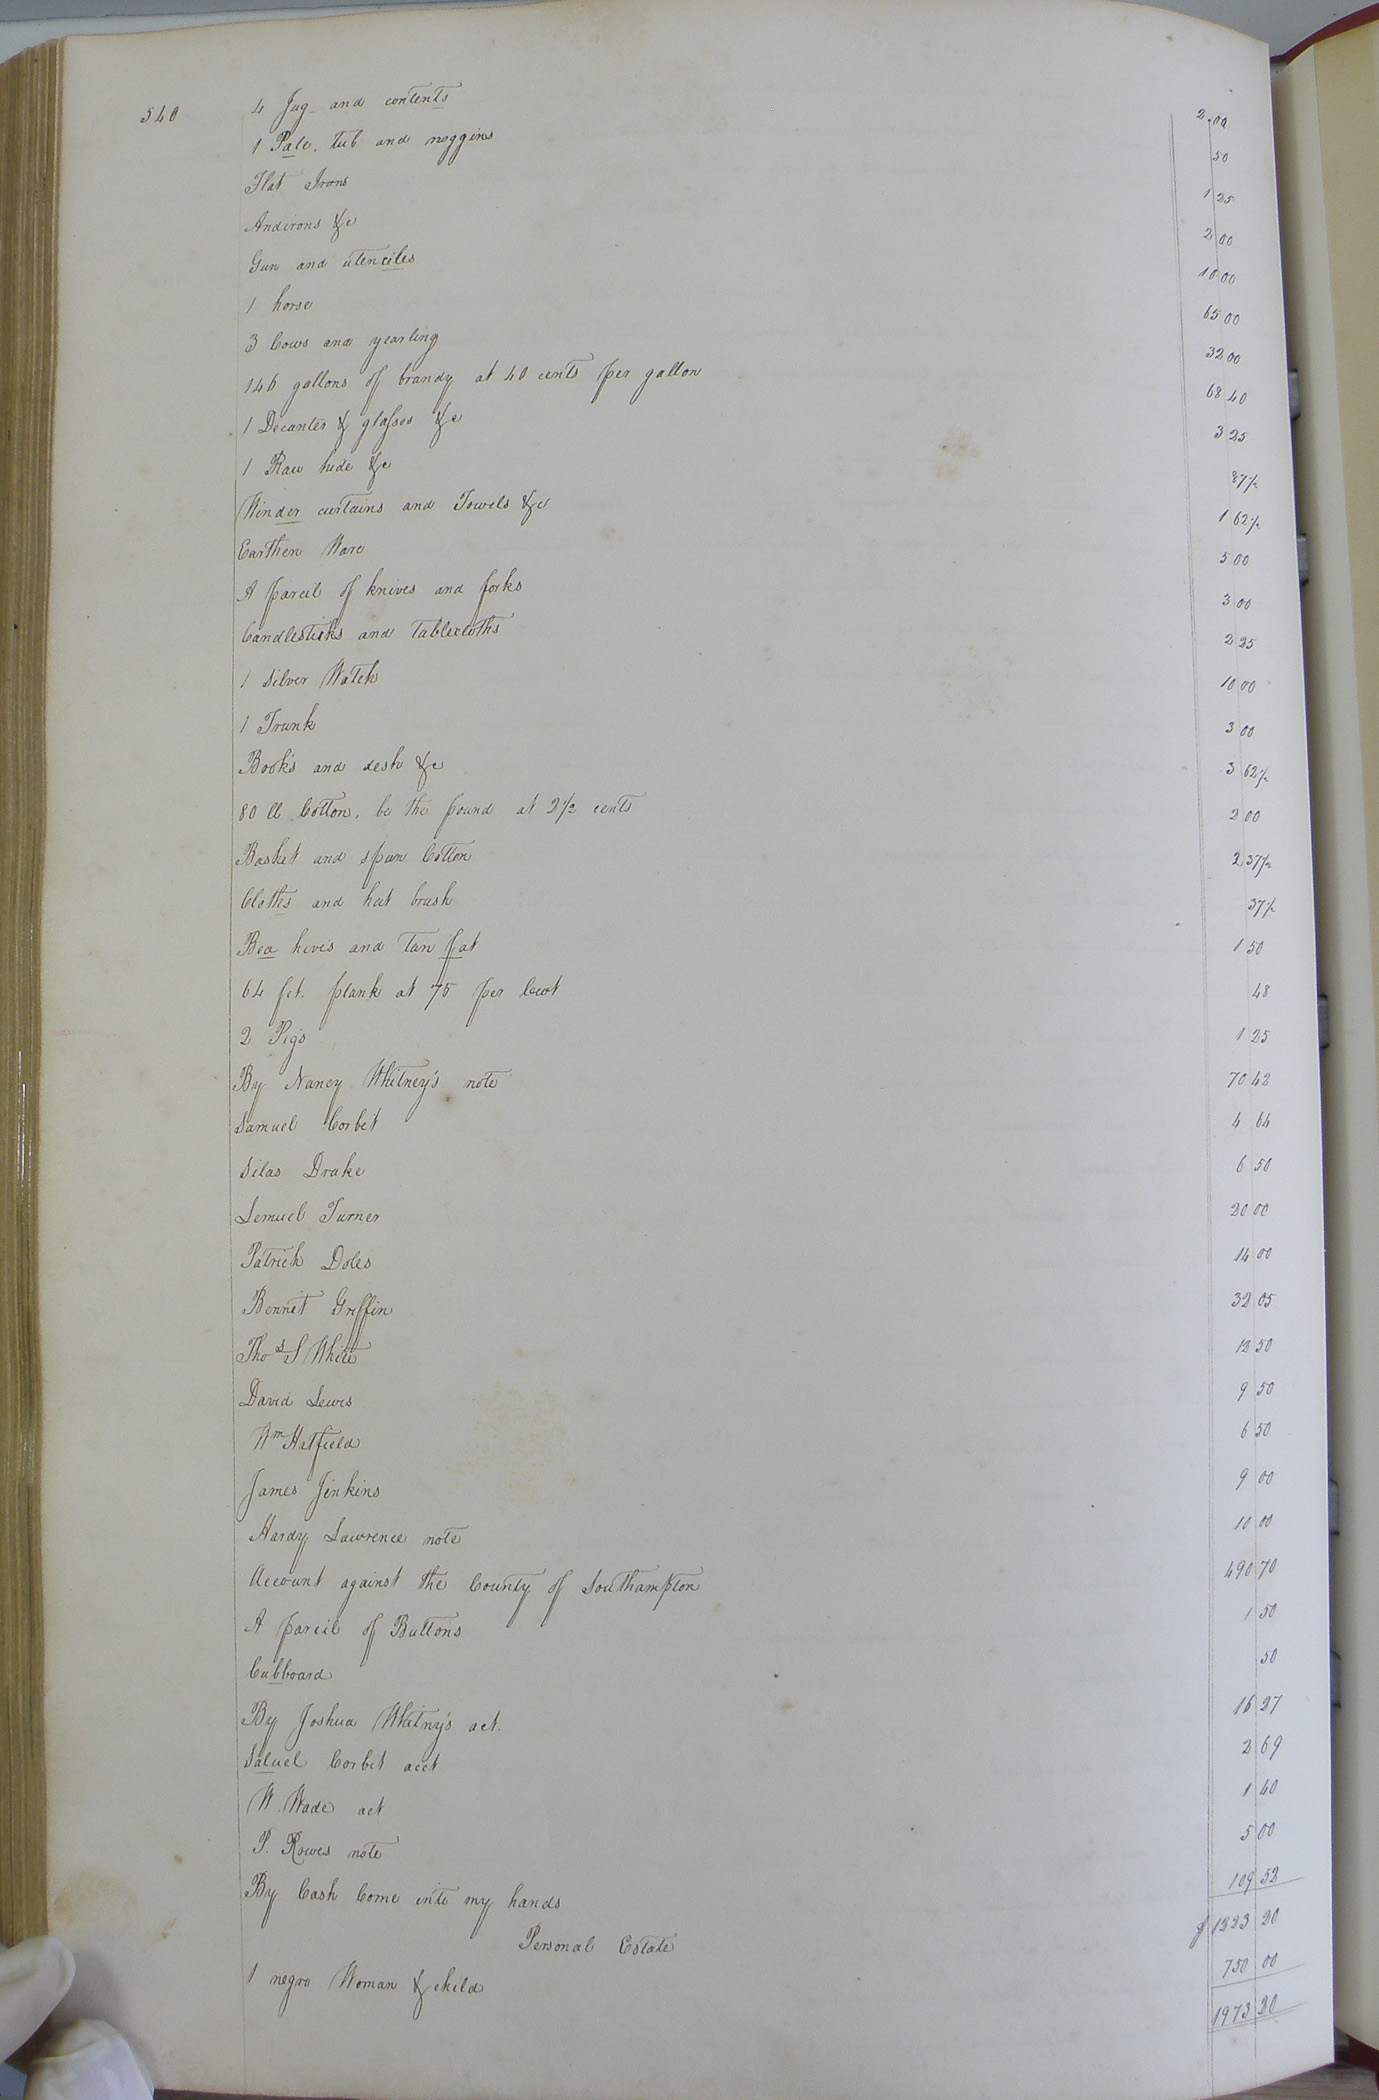 540 4 Jug and contents 2.00
1 Pale. tub and noggins 50
Flat Irons 1 25
Andirons &c 2 00
Gun and utenciles 10 00
1 horse 65 00
3 Cows and yearling 32 00
146 gallons of brandy at 40 cents per gallon 68 40
1 Decanter & glasses &c 3 25
1 Raw hide &c 87½
Winder curtains and Towels &c 1 62½
Earthen Ware 5 00
A parcil of knives and forks 3 00
Candlesticks and Tablecloths 2 25
1 Silver Watch 10 00
1 Trunk 3 00
Books and desk &c 3 62½
80 ll Cotton. be the pound at 2½ cents 2 00
Basket and spun Cotton 2 37½
Cloths and hat brush 37½
Bea hives and Tan fat 1 50
64 fet. plank at 75 per 48
2 Pigs 1 25
By Nancy Whitney's note 70 42
Samuel Corbit 4 64
Silas Drake 6 50
Lemuel Turner 20 00
Patrick Doles 14 00
Bennit Griffin 32 05
Thos S White 12 50
David Lewis 9 50
Wm Hatfield 6 50
James Jinkins 9 00
Hardy Lawrence note 10 00
Account against the County of Southampton 490 70
A parcil of Buttons 1 50
Cubboard 50
By Joshua Whitny's act. 16 27
Saluel Corbit acct 2 69
W. Wade act 1 40
P. Rowes note 5 00
By Cash Come into my hands 109 52
$1223 20
Personal Estate
1 negro Woman & child 750 00
1973 20